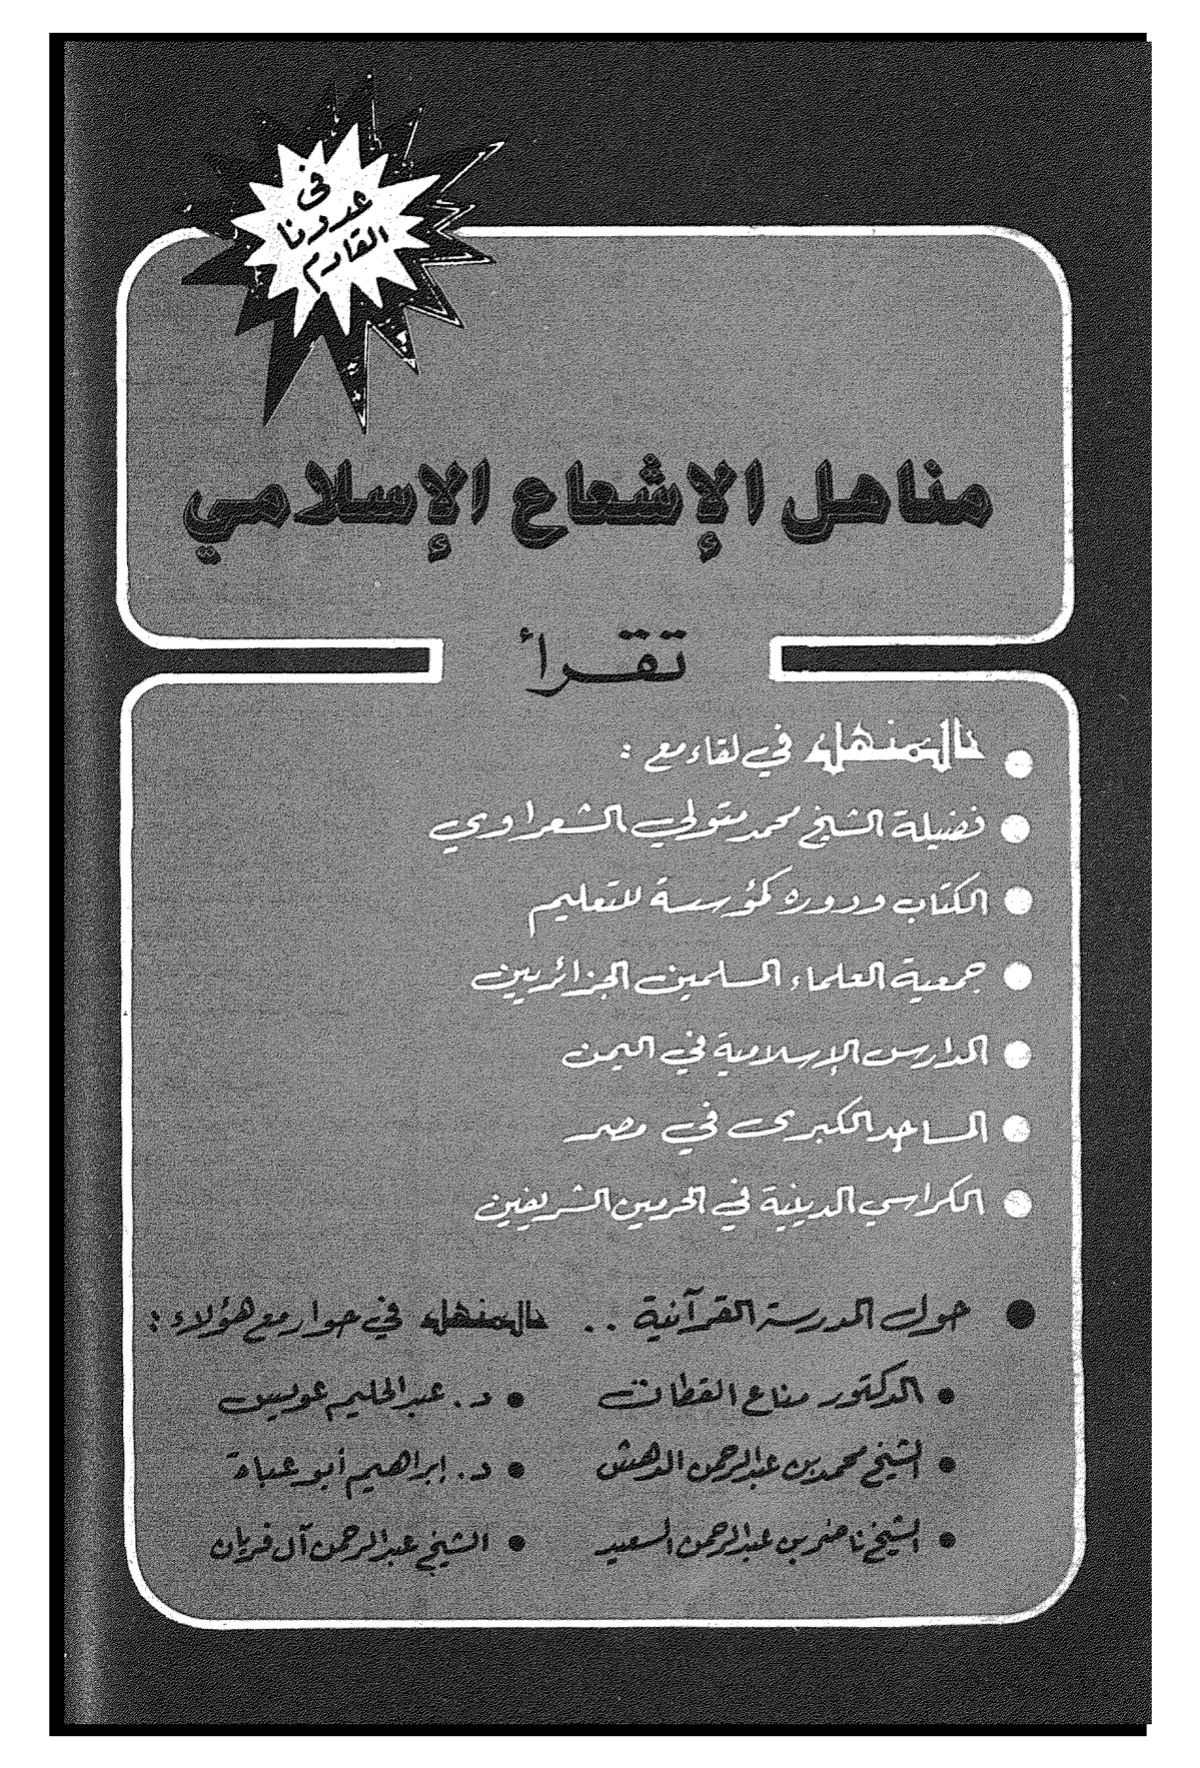 في
عددنا
القادم
مناهل الإشعاع الإسلامي
تقرأ
المنهل في لقاء مع :
فضيلة الشيخ محمد متولي الشعراوي
الكتاب ودوره كمؤسسة للتعليم
جمعية العلماء المسلمين الجزائريين
المدارس الإسلامية في اليمن
المساجد الكبرى في مصر
الكراسي الدينية في الحرمين الشريفين
حول المدرسة القرآنية .. المنهل في حوار مع هؤلاء :
الدكتور مناع القطان
د. عبدالحليم عويس
الشيخ محمد بن عبدالرحمن الدهش
د. إبراهيم أبو عباة
الشيخ ناصر بن عبدالرحمن السعيد
الشيخ عبدالرحمن آل فريان